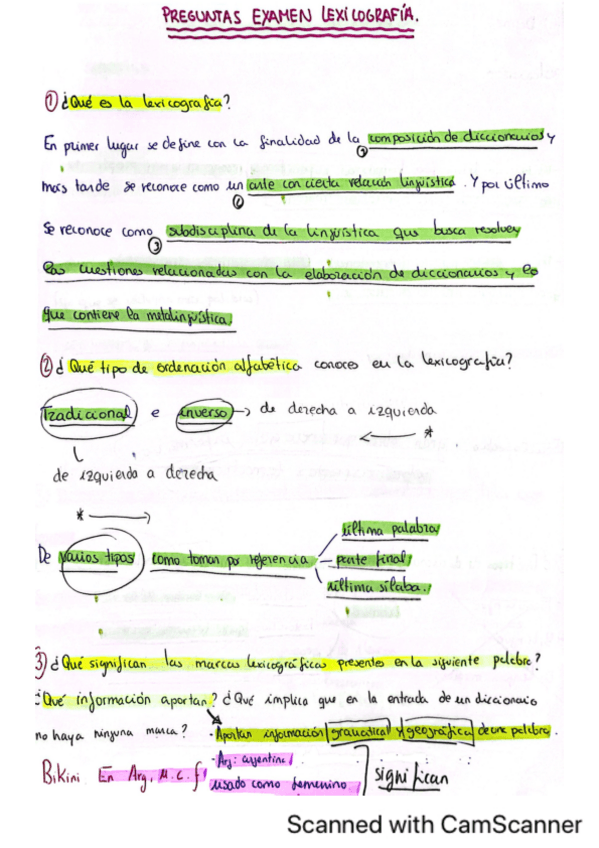 PREGUNTAS EXAMEN LEXICOGRAFÍA.
① ¿Qué es la lexicografía?
En primer lugar se define con la finalidad de la composición de diccionarios y
①
más tarde se reconoce como un arte con cierta relación lingüística. Y por último
②
se reconoce como subdisciplina de la lingüística que busca resolver
③
las cuestiones relacionadas con la elaboración de diccionarios y lo
que contiene la metalingüística.
② ¿Qué tipo de ordenación alfabética conoces en la lexicografía?
Tradicional e inverso → de derecha a izquierda
← *
de izquierda a derecha
* →
última palabra
De varios tipos como toman por referencia parte final
última sílaba.
3) ¿Qué significan las marcas lexicográficas presentes en la siguiente palabra?
¿Qué información aportan? ¿Qué implica que en la entrada de un diccionario
no haya ninguna marca? · Aportan información gramatical y geográfica de una palabra.
· Arg: argentina
Bikini En Arg, u. c. f usado como femenino significan
Scanned with CamScanner